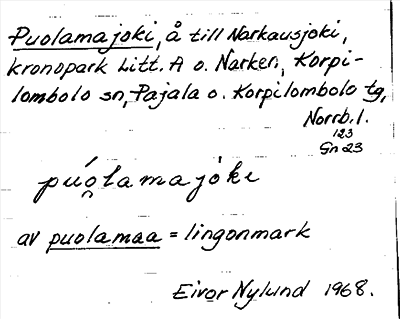 Puolamajoki, å till Narkausjoki,
kronopark Litt. A o. Narken, Korpi-
lombolo sn, Pajala o. Korpilombolo tg,
Norrb. l.
123
Gn 23
púo̯lamajòki
av puolamaa = lingonmark
Eivor Nylund 1968.